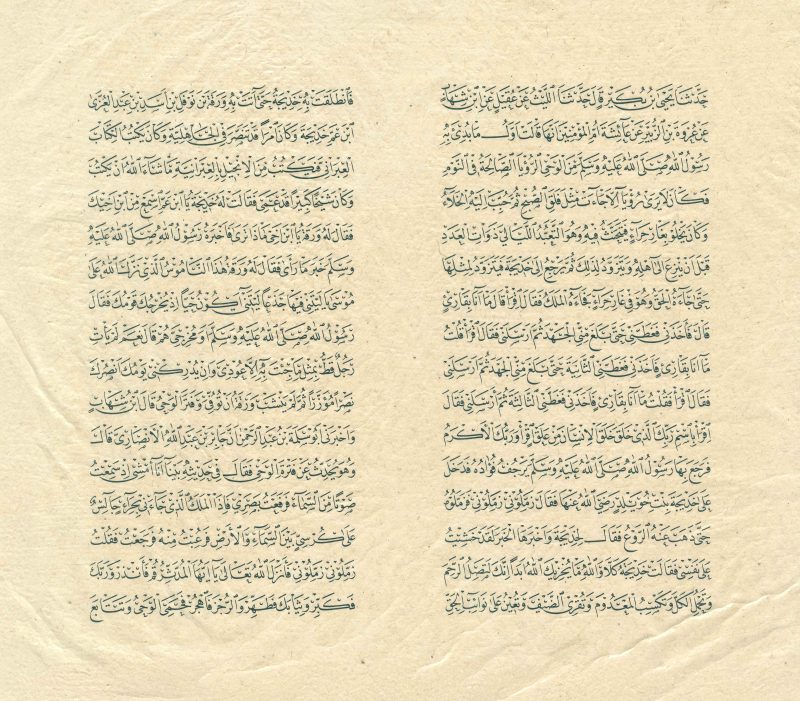 حَدَّثَنَا يَحْيَى بْنُ بُكَيْرٍ قَالَ حَدَّثَنَا اللَّيْثُ عَنْ عُقَيْلٍ عَنِ ابْنِ شِهَابٍ
عَنْ عُرْوَةَ بْنِ الزُّبَيْرِ عَنْ عَائِشَةَ أُمِّ الْمُؤْمِنِينَ أَنَّهَا قَالَتْ أَوَّلُ مَا بُدِئَ بِهِ
رَسُولُ اللهِ صَلَّى اللهُ عَلَيْهِ وَسَلَّمَ مِنَ الْوَحْيِ الرُّؤْيَا الصَّالِحَةُ فِي النَّوْمِ
فَكَانَ لَا يَرَى رُؤْيَا إِلَّا جَاءَتْ مِثْلَ فَلَقِ الصُّبْحِ ثُمَّ حُبِّبَ إِلَيْهِ الْخَلَاءُ
وَكَانَ يَخْلُو بِغَارِ حِرَاءٍ فَيَتَحَنَّثُ فِيهِ وَهُوَ التَّعَبُّدُ اللَّيَالِيَ ذَوَاتِ الْعَدَدِ
قَبْلَ أَنْ يَنْزِعَ إِلَى أَهْلِهِ وَيَتَزَوَّدُ لِذَلِكَ ثُمَّ يَرْجِعُ إِلَى خَدِيجَةَ فَيَتَزَوَّدُ لِمِثْلِهَا
حَتَّى جَاءَهُ الْحَقُّ وَهُوَ فِي غَارِ حِرَاءٍ فَجَاءَهُ الْمَلَكُ فَقَالَ اقْرَأْ قَالَ مَا أَنَا بِقَارِئٍ
قَالَ فَأَخَذَنِي فَغَطَّنِي حَتَّى بَلَغَ مِنِّي الْجَهْدَ ثُمَّ أَرْسَلَنِي فَقَالَ اقْرَأْ قُلْتُ
مَا أَنَا بِقَارِئٍ فَأَخَذَنِي فَغَطَّنِي الثَّانِيَةَ حَتَّى بَلَغَ مِنِّي الْجَهْدَ ثُمَّ أَرْسَلَنِي
فَقَالَ اقْرَأْ فَقُلْتُ مَا أَنَا بِقَارِئٍ فَأَخَذَنِي فَغَطَّنِي الثَّالِثَةَ ثُمَّ أَرْسَلَنِي فَقَالَ
اقْرَأْ بِاسْمِ رَبِّكَ الَّذِي خَلَقَ خَلَقَ الْإِنْسَانَ مِنْ عَلَقٍ اقْرَأْ وَرَبُّكَ الْأَكْرَمُ
فَرَجَعَ بِهَا رَسُولُ اللهِ صَلَّى اللهُ عَلَيْهِ وَسَلَّمَ يَرْجُفُ فُؤَادُهُ فَدَخَلَ
عَلَى خَدِيجَةَ بِنْتِ خُوَيْلِدٍ رَضِيَ اللهُ عَنْهَا فَقَالَ زَمِّلُونِي زَمِّلُونِي فَزَمَّلُوهُ
حَتَّى ذَهَبَ عَنْهُ الرَّوْعُ فَقَالَ لِخَدِيجَةَ وَأَخْبَرَهَا الْخَبَرَ لَقَدْ خَشِيتُ
عَلَى نَفْسِي فَقَالَتْ خَدِيجَةُ كَلَّا وَاللهِ مَا يُخْزِيكَ اللهُ أَبَدًا إِنَّكَ لَتَصِلُ الرَّحِمَ
وَتَحْمِلُ الْكَلَّ وَتَكْسِبُ الْمَعْدُومَ وَتَقْرِي الضَّيْفَ وَتُعِينُ عَلَى نَوَائِبِ الْحَقِّ
فَانْطَلَقَتْ بِهِ خَدِيجَةُ حَتَّى أَتَتْ بِهِ وَرَقَةَ بْنَ نَوْفَلِ بْنِ أَسَدِ بْنِ عَبْدِ الْعُزَّى
ابْنَ عَمِّ خَدِيجَةَ وَكَانَ امْرَأً قَدْ تَنَصَّرَ فِي الْجَاهِلِيَّةِ وَكَانَ يَكْتُبُ الْكِتَابَ
الْعِبْرَانِيَّ فَيَكْتُبُ مِنَ الْإِنْجِيلِ بِالْعِبْرَانِيَّةِ مَا شَاءَ اللهُ أَنْ يَكْتُبَ
وَكَانَ شَيْخًا كَبِيرًا قَدْ عَمِيَ فَقَالَتْ لَهُ خَدِيجَةُ يَا ابْنَ عَمِّ اسْمَعْ مِنِ ابْنِ أَخِيكَ
فَقَالَ لَهُ وَرَقَةُ يَا ابْنَ أَخِي مَاذَا تَرَى فَأَخْبَرَهُ رَسُولُ اللهِ صَلَّى اللهُ عَلَيْهِ
وَسَلَّمَ خَبَرَ مَا رَأَى فَقَالَ لَهُ وَرَقَةُ هَذَا النَّامُوسُ الَّذِي نَزَّلَ اللهُ عَلَى
مُوسَى يَا لَيْتَنِي فِيهَا جَذَعًا لَيْتَنِي أَكُونُ حَيًّا إِذْ يُخْرِجُكَ قَوْمُكَ فَقَالَ
رَسُولُ اللهِ صَلَّى اللهُ عَلَيْهِ وَسَلَّمَ أَوَمُخْرِجِيَّ هُمْ قَالَ نَعَمْ لَمْ يَأْتِ
رَجُلٌ قَطُّ بِمِثْلِ مَا جِئْتَ بِهِ إِلَّا عُودِيَ وَإِنْ يُدْرِكْنِي يَوْمُكَ أَنْصُرْكَ
نَصْرًا مُؤَزَّرًا ثُمَّ لَمْ يَنْشَبْ وَرَقَةُ أَنْ تُوُفِّيَ وَفَتَرَ الْوَحْيُ قَالَ ابْنُ شِهَابٍ
وَأَخْبَرَنِي أَبُو سَلَمَةَ بْنُ عَبْدِ الرَّحْمَنِ أَنَّ جَابِرَ بْنَ عَبْدِ اللهِ الْأَنْصَارِيَّ قَالَ
وَهُوَ يُحَدِّثُ عَنْ فَتْرَةِ الْوَحْيِ فَقَالَ فِي حَدِيثِهِ بَيْنَا أَنَا أَمْشِي إِذْ سَمِعْتُ
صَوْتًا مِنَ السَّمَاءِ فَرَفَعْتُ بَصَرِي فَإِذَا الْمَلَكُ الَّذِي جَاءَنِي بِحِرَاءٍ جَالِسٌ
عَلَى كُرْسِيٍّ بَيْنَ السَّمَاءِ وَالْأَرْضِ فَرُعِبْتُ مِنْهُ فَرَجَعْتُ فَقُلْتُ
زَمِّلُونِي زَمِّلُونِي فَأَنْزَلَ اللهُ تَعَالَى يَا أَيُّهَا الْمُدَّثِّرُ قُمْ فَأَنْذِرْ وَرَبَّكَ
فَكَبِّرْ وَثِيَابَكَ فَطَهِّرْ وَالرُّجْزَ فَاهْجُرْ فَحَمِيَ الْوَحْيُ وَتَتَابَعَ